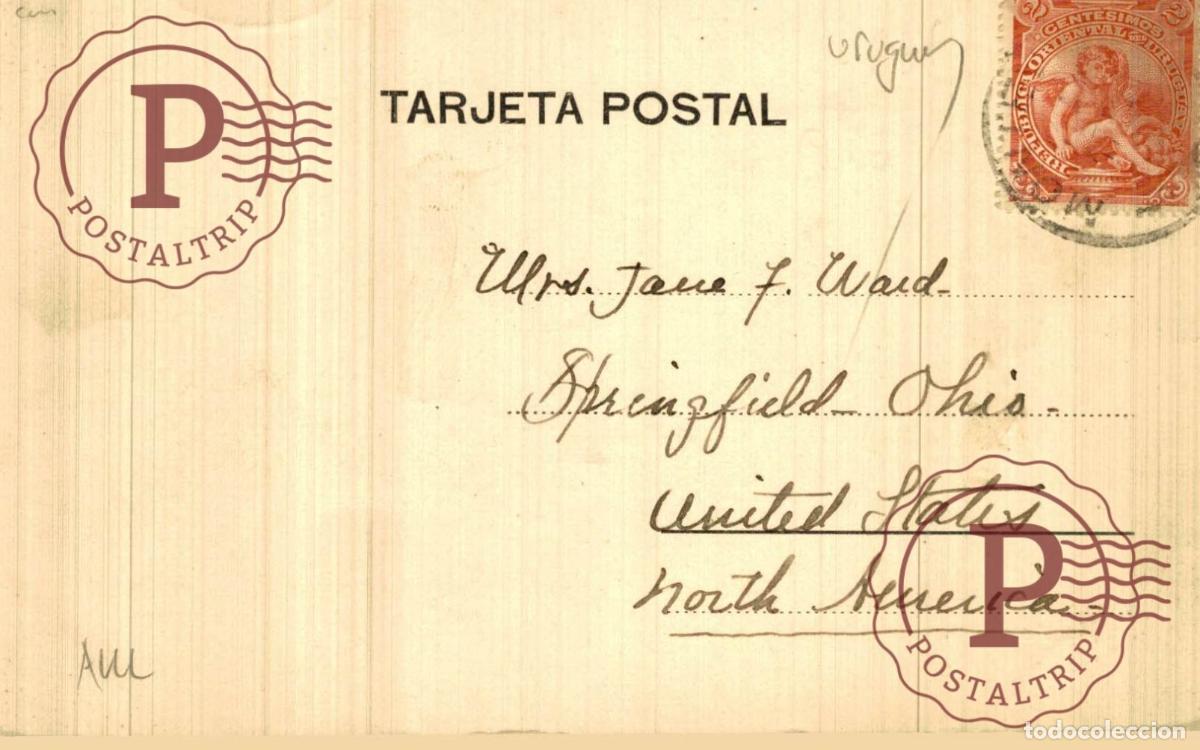 TARJETA POSTAL
CENTESIMOS
REPUBLICA ORIENTAL DEL URUGUAY
2
2
2
2
P
POSTALTRIP
Mrs. Jane F. Ward
Springfield Ohio.
United States
North America
P
POSTALTRIP
todocoleccion